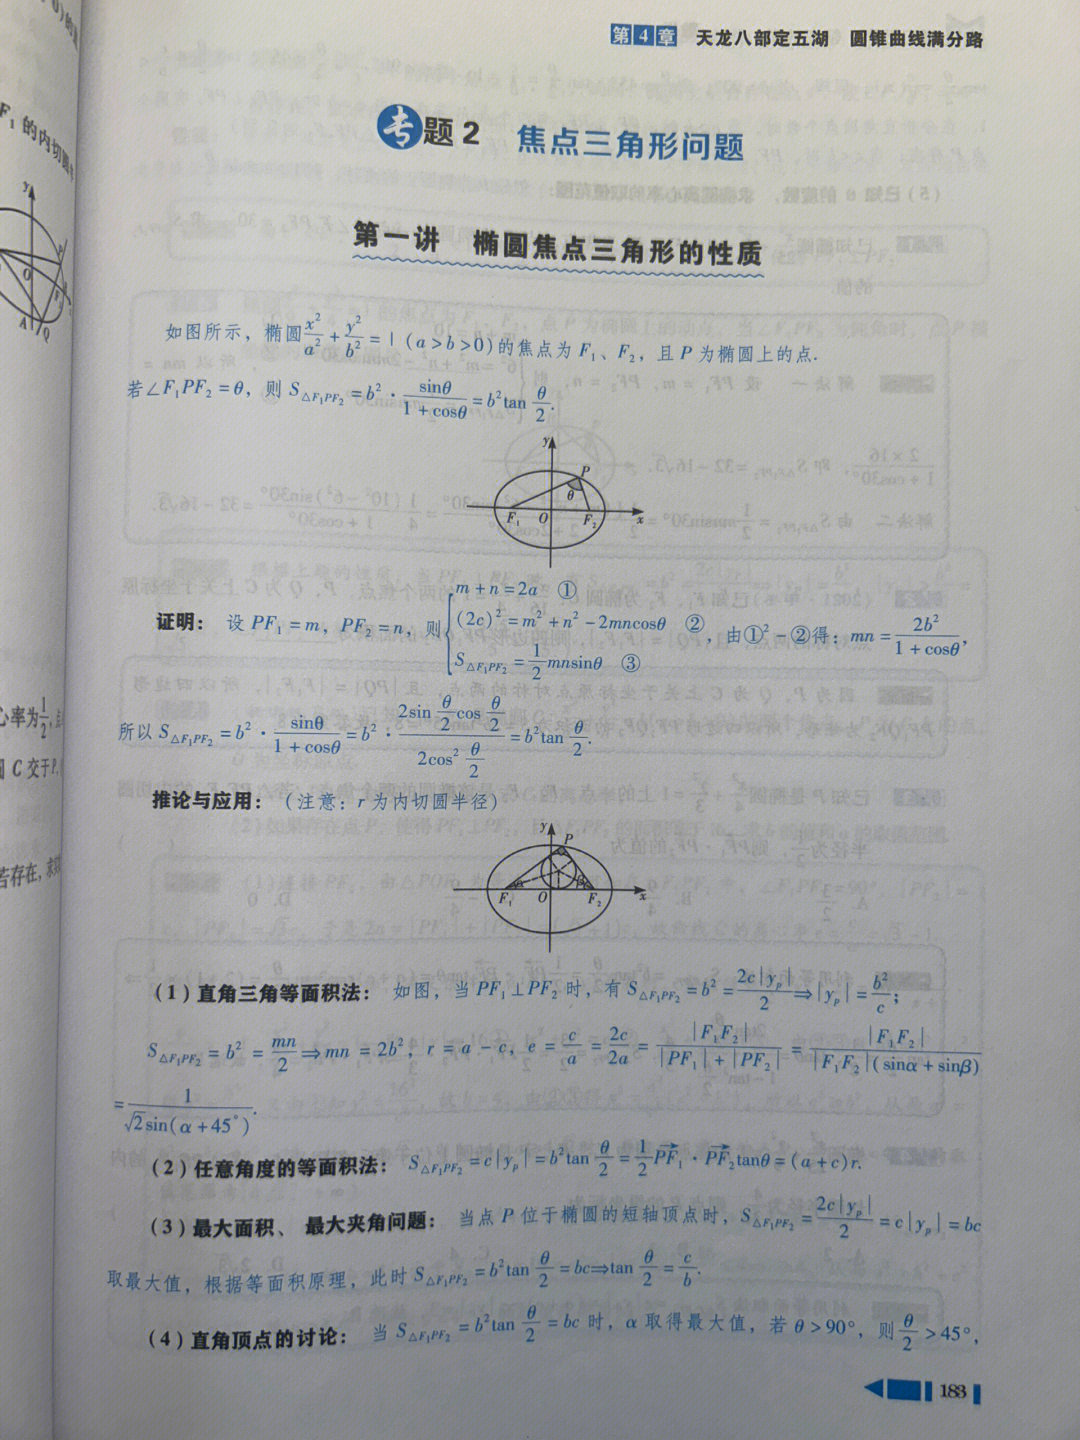 第4章 天龙八部定五湖 圆锥曲线满分路
专题2 焦点三角形问题
第一讲 椭圆焦点三角形的性质
如图所示，椭圆x²/a²+y²/b²=1（a>b>0）的焦点为F₁、F₂，且P为椭圆上的点.
若∠F₁PF₂=θ，则S△F₁PF₂=b²·sinθ/(1+cosθ)=b²tan θ/2.
y
P
θ
F₁ O F₂ x
证明：设PF₁=m，PF₂=n，则{m+n=2a ① (2c)²=m²+n²-2mncosθ ② S△F₁PF₂=1/2 mnsinθ ③，由①²-②得：mn=2b²/(1+cosθ)，
所以S△F₁PF₂=b²·sinθ/(1+cosθ)=b²·(2sin θ/2 cos θ/2)/(2cos² θ/2)=b²tan θ/2.
推论与应用：（注意：r为内切圆半径）
y
P
α β
F₁ O F₂ x
（1）直角三角等面积法：如图，当PF₁⊥PF₂时，有S△F₁PF₂=b²=2c|yₚ|/2⇒|yₚ|=b²/c；
S△F₁PF₂=b²=mn/2⇒mn=2b²，r=a-c，e=c/a=2c/2a=|F₁F₂|/(|PF₁|+|PF₂|)=|F₁F₂|/(|F₁F₂|(sinα+sinβ))
=1/(√2sin(α+45°)).
（2）任意角度的等面积法：S△F₁PF₂=c|yₚ|=b²tan θ/2=1/2 PF₁·PF₂tanθ=(a+c)r.
（3）最大面积、最大夹角问题：当点P位于椭圆的短轴顶点时，S△F₁PF₂=2c|yₚ|/2=c|yₚ|=bc
取最大值，根据等面积原理，此时S△F₁PF₂=b²tan θ/2=bc⇒tan θ/2=c/b.
（4）直角顶点的讨论：当S△F₁PF₂=b²tan θ/2=bc时，α取得最大值，若θ>90°，则θ/2>45°，
183
F₁的内切圆
y
O
A Q
心率为1/2，点
C交于P，
若存在，求